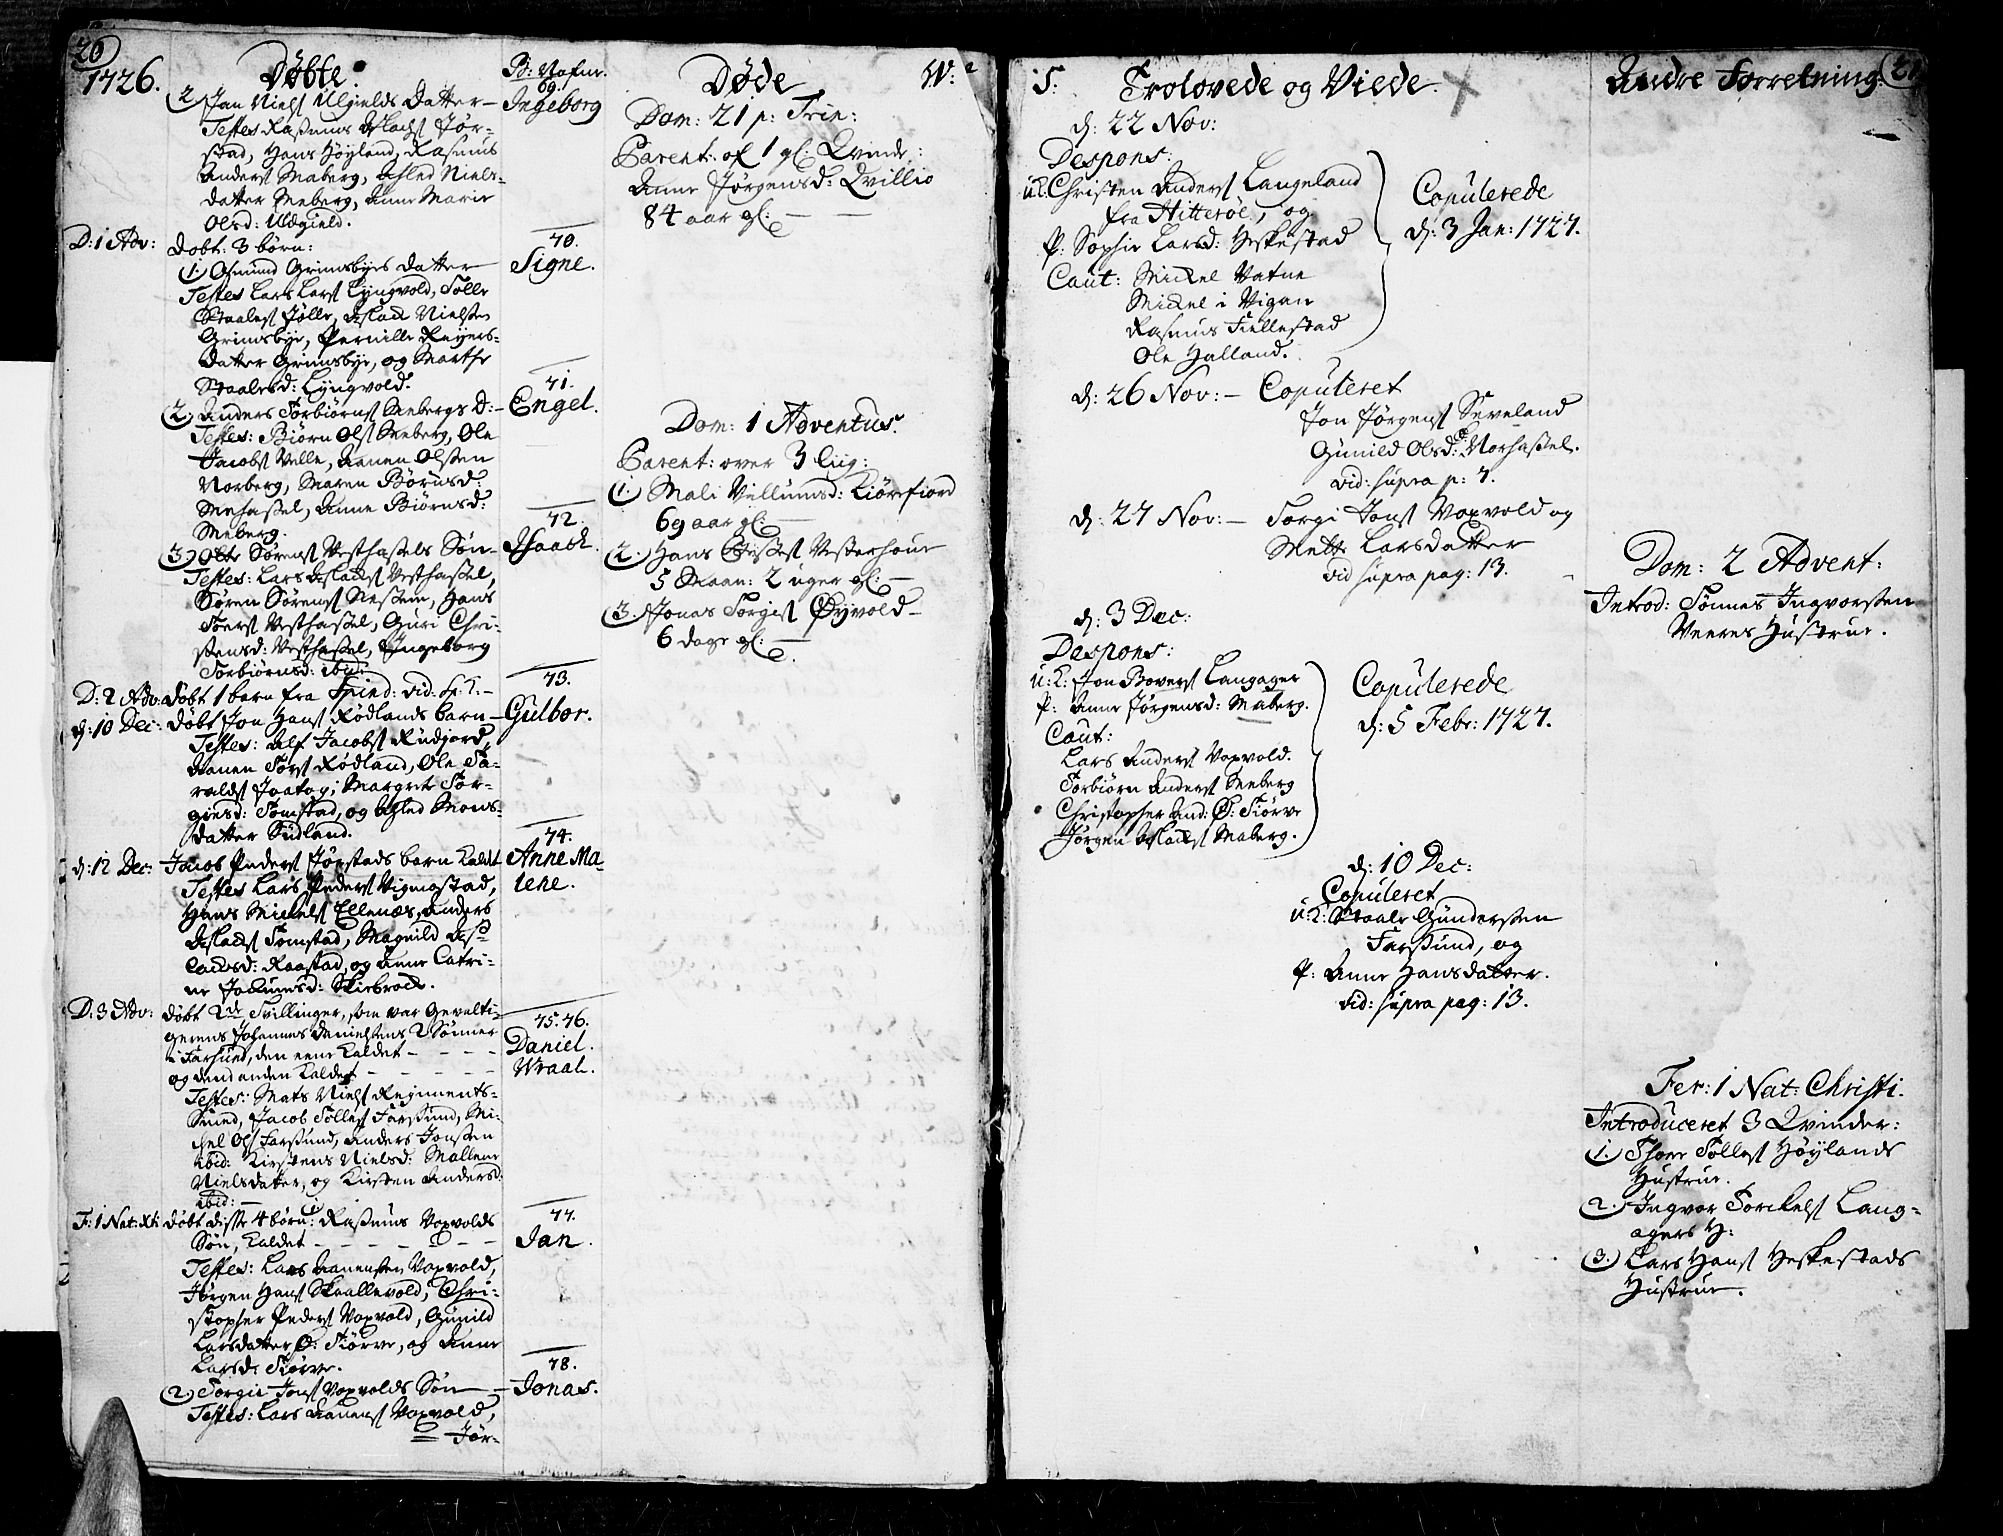 20
1726.
Døbte.
2. Jan Niels Ulgields Datter
Testes Rasmus Aslachs Jør-
stad, Hans Høyland, Rasmus
Anders Maberg, Asled Niels-
datter Meberg, Anne Marie
Olsd: Udgield.
D: 1 Adv: døbt: 3 børn:
1. Osmund Grimsbyes datter
Testes Lars Lars Lyngvold, Tølle
Staales Jølle, Aslack Nielsen
Grimsbye, Pernille Reyers-
datter Grimsbye, og Marthe
Staalesd: Lyngvold.
2. Anders Torbiørns Mebergs D:
Testes: Biørn Ols Meberg, Ole
Jacobs Velle, Aanen Olsen
Norberg, Maren Børnsd:
Mehassel, Anne Biørnsd:
Meberg.
3. Sørens Vesthassels Søn
Testes: Lars Aslacks Vesthassel,
Søren Sørens Nestem, Hans
Toers Vesthassel, Guri Chri-
stensd: Vesthassel, Ingeborg
Torbiørnsd: ibid:
D: 2 Adv: døbt 1 barn fra Spind: vid: Sp: K:
d: 10 Dec: døbt Jon Hans Rødlands barn
Testes: Alf Jacobs Rudjord,
Aanen Tors Rødland, Ole Ta-
ralds Jaatog; Margrete Tor-
giesd: Tomstad, og Asled Mons-
datter Sudland.
d: 12 Dec: Jacob Peders Jørstads barn kaldt
Testes Lars Peders Vigmostad,
Hans Mickels Ellenæs, Anders
Aslacks Tomstad, Magnild As-
lacksd: Raastad, og Anne Catri-
ne Jochumsd: Skiebrock.
D: 3 Adv: døbt 2de Tvillinger, som var Gevelti-
gerens Johannes Danielsens 2 Sønner
i Farsund, den eene kaldet
og dend anden kaldet
Testes: Mats Niels Regiments-
Smed, Jacob Tølles Farsund, Mi-
kel Ols Farsund, Anders Jonsen
ibid: Kirstens Nielsd: Mallene
Nielsdatter, og Kirsten Andersd:
ibid:
F: 1 Nat: Xti: døbt disse 4 børn: 1. Rasmus Voxvolds
Søn, kaldet
Testes: Lars Aanensen Voxvold,
Jørgen Hans Skaallevold, Chri-
stopher Peders Voxvold, Gunild
Larsdatter Ø: Tiørve, og Anne
Larsd: Tiørve.
2. Torgie Jons Voxvolds Søn
Testes: Lars Aanens Voxvold,
Jør-
B: Nafne.
69.
Ingeborg
70.
Signe.
71.
Engel.
72.
Isaack.
73.
Gulbor.
74.
Anne Ma-
lene.
75. 76.
Daniel.
Wraal.
77.
Jan.
78.
Jonas.
Døde
Dom: 21 p: Trin:
Parent: of 1 gl: Qvinde:
Anne Jørgensd: Qvillio
84 aar gl:
Dom: 1 Adventus.
Parent: over 3 liig:
1. Mali Villumsd: Kiørefiord
69 aar gl:
2. Hans Vesterhoue
5 Maan: 2 uger gl:
3. Jonas Torgies Øyvold
6 dage gl:
S. Trolovede og Viede.
d: 22 Nov:
Despons:
u.k: Christen Anders Langeland
fra Hitterøe, og
P: Sophie Larsd: Heskestad
Caut: Mickel Vatne
Mickel i Vigan
Rasmus Fiellestad
Ole Halland.
Copulerede
d: 3 Jan: 1727.
d: 26 Nov: Copuleret
Jon Jørgens Seveland
Gunild Olsd: Norhassel.
vid: supra p: 7.
d: 27 Nov: Torgi Jons Voxvold og
Mette Larsdatter
vid supra pag: 13.
d: 3 Dec:
Despons:
u: K: Jon Bovers Langager
P: Anne Jørgensd: Maberg.
Caut:
Lars Anders Voxvold.
Torbiørn Anders Meberg
Christopher And: Ø: Tiørve
Jørgen Aslacks Maberg.
Copulerede
d: 5 Febr: 1727.
d: 10 Dec:
Copuleret
u: K: Staale Gundersen
Farsund, og
P: Anne Hansdatter.
vid: supra pag: 13.
Andre Forretning:
21
Dom: 2 Advent:
Introd: Tønnes Ingvorsen
Veeres Hustrue.
Fer: 1 Nat: Christi.
Introduceret 3 Qvinder:
1. Thore Tølles Høylands
Hustrue.
2. Ingvor Torckels Lang-
agers H:
3. Lars Hans Heskestads
Hustrue.